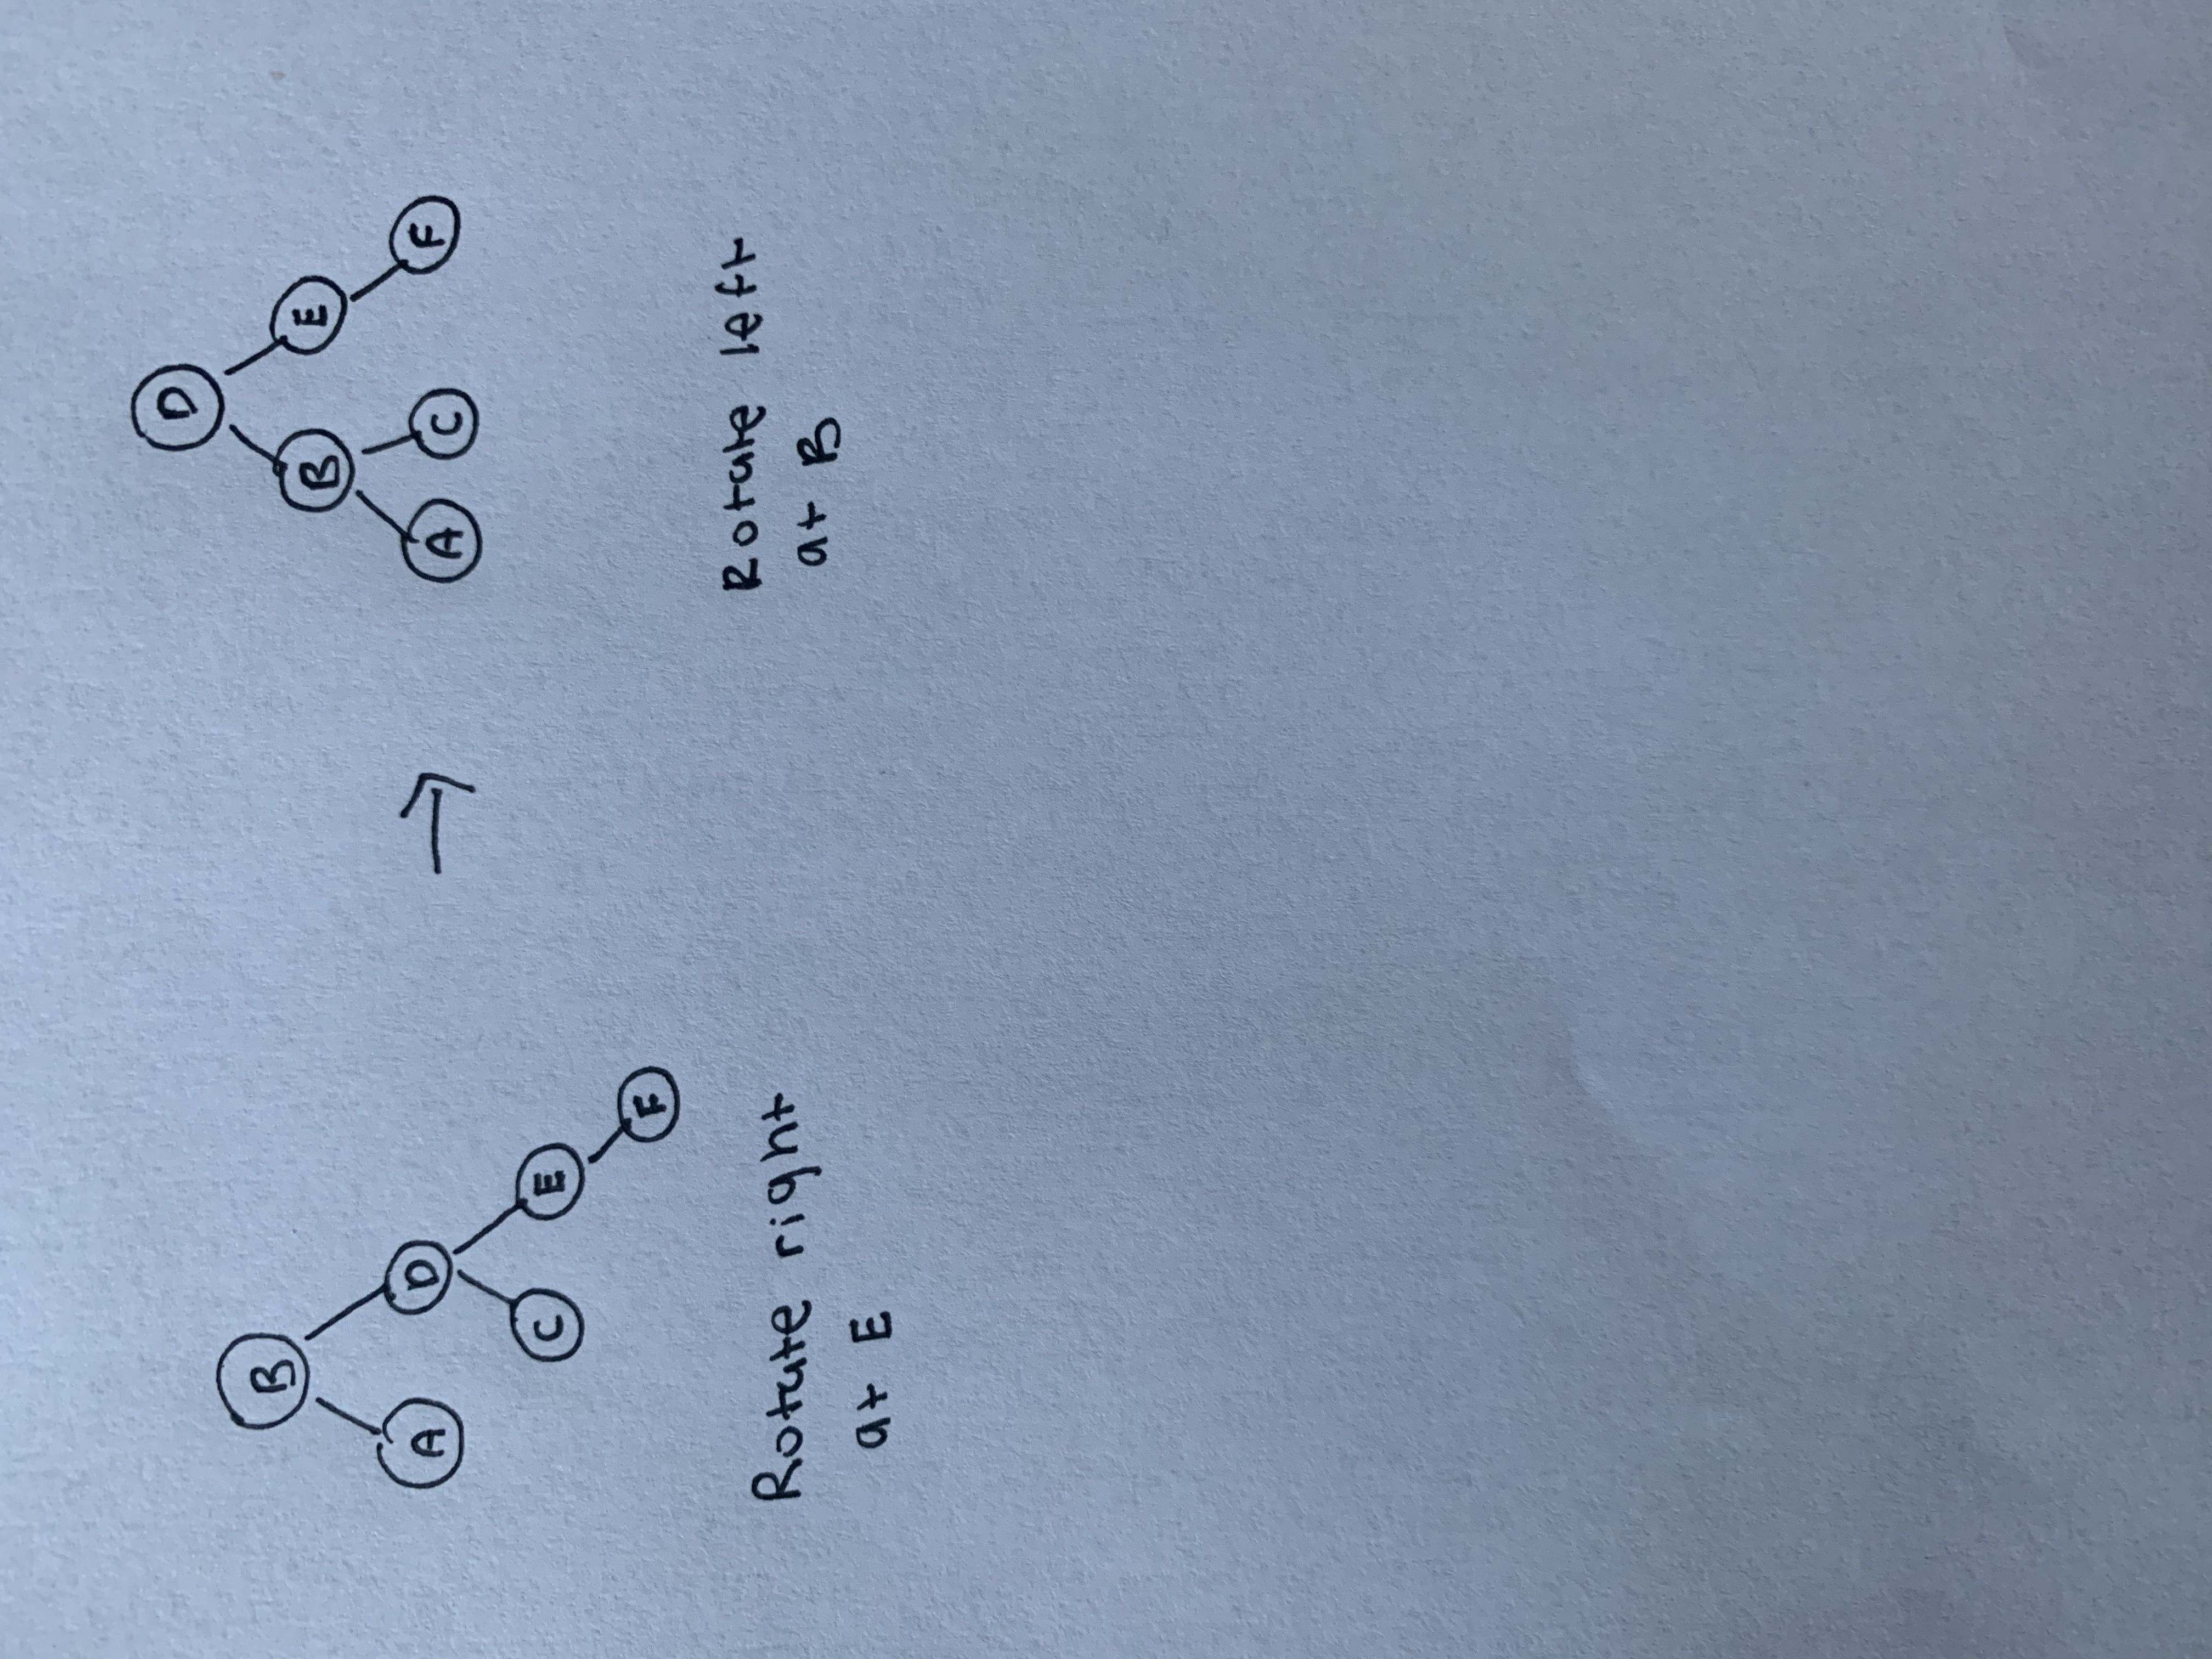 B
A
D
C
E
F
Rotate right
at E
→
D
B
E
A
C
F
Rotate left
at B